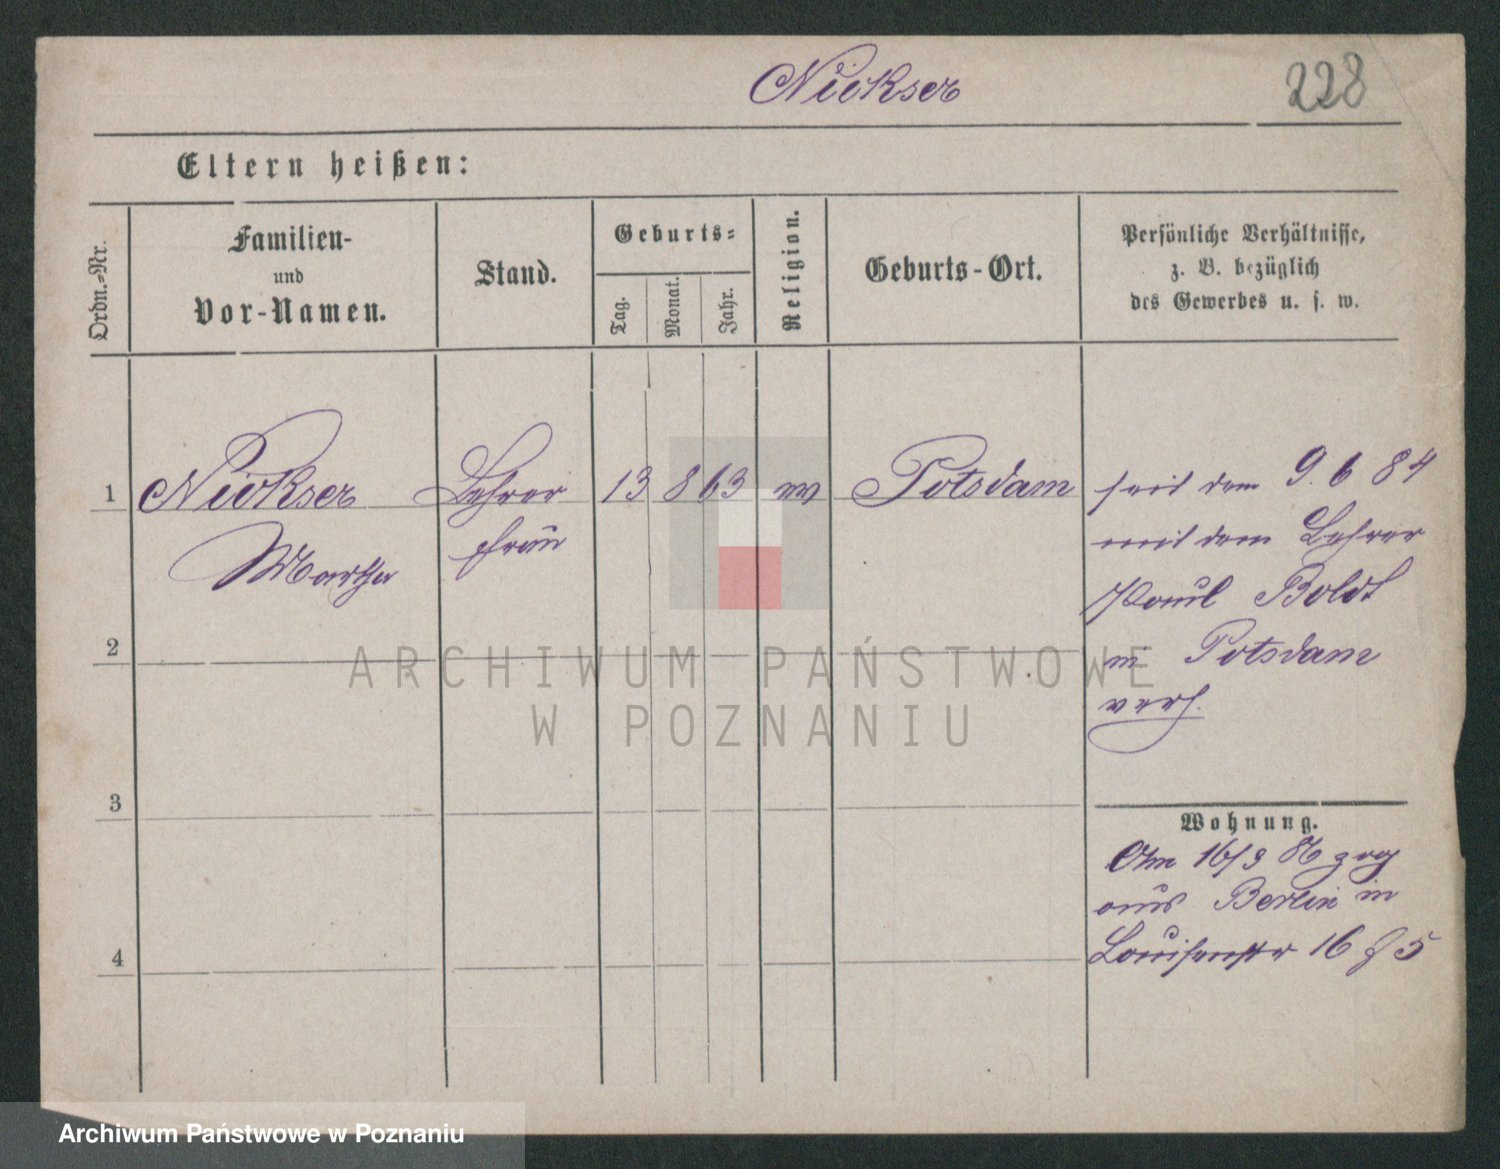 Niekser
228
Eltern heißen:
Ordn.-Nr.
Familien-
und
Vor-Namen.
Stand.
Geburts-
Tag.
Monat.
Jahr.
Religion.
Geburts-Ort.
Persönliche Verhältnisse,
z. B. bezüglich
des Gewerbes u. s. w.
1
Niekser
Martha
Lehrer
frau
13
8
63
ev
Potsdam
seit dem 9. 6 84
mit dem Lehrer
Paul Boldt
in Potsdam
verh.
2
3
4
Wohnung.
Am 16/9 86 zog
aus Berlin in
Louisenstr 16 b 5
ARCHIWUM PAŃSTWOWE
W POZNANIU
Archiwum Państwowe w Poznaniu